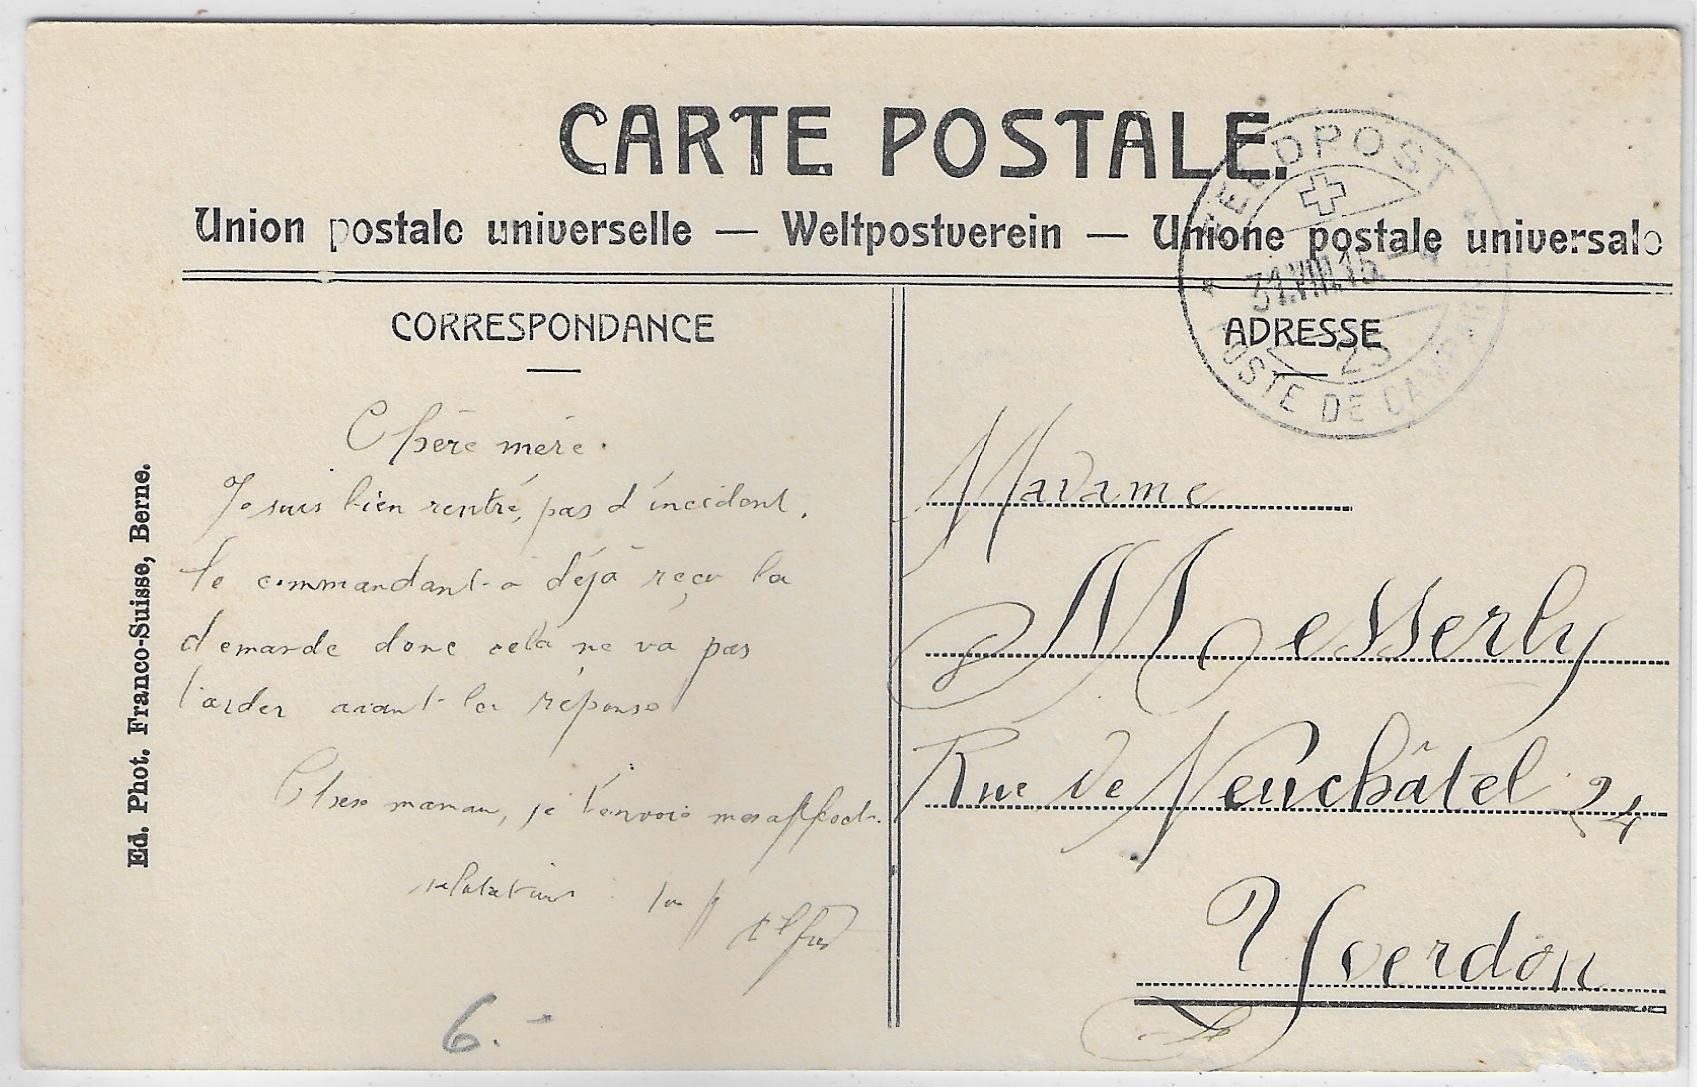 CARTE POSTALE.
Union postale universelle — Weltpostverein — Unione postale universale
FELDPOST
31.VIII.15
25
POSTE DE CAMPAGNE
CORRESPONDANCE
ADRESSE
Chère mère.
Je suis bien rentré, pas d'incident.
le commandant a déjà reçu la
demande donc cela ne va pas
tarder avant la réponse
Chère maman, je t'envois mes affect.
salutations ton
Madame
Messerly
Rue de Neuchâtel 24
Yverdon
Ed. Phot. Franco-Suisse, Berne.
6.-